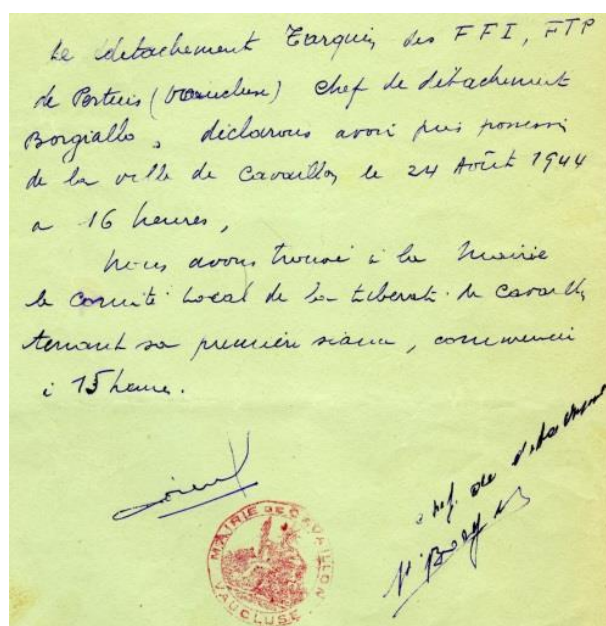 Le détachement Tarquin des FFI, FTP
de Pertuis (Vaucluse) Chef de détachement
Borgiallo, déclarons avoir pris possessi
de la ville de Cavaillon le 24 Août 1944
a 16 heures,
Nous avons trouvé à la Mairie
le comité Local de la Liberati de Cavaillon
tenant sa première séance, commencée
à 15 heure.
chef de détachement
MAIRIE DE CAVAILLON
VAUCLUSE